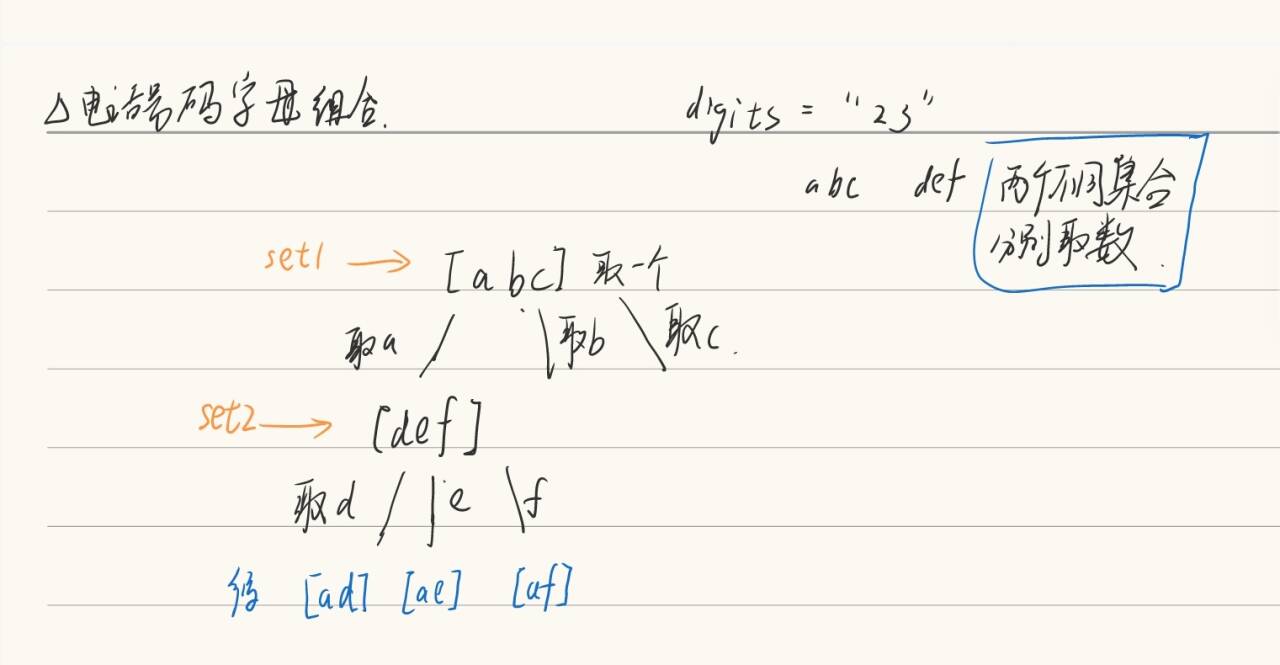 △电话号码字母组合.
digits = "23"
abc def 两个不同集合
分别取数.
set1 → [abc] 取一个
取a 取b 取c.
set2 → [def]
取d e f
[ad] [ae] [af]